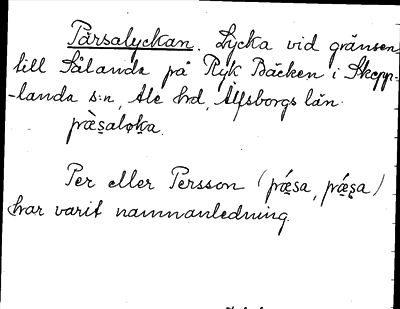 Pärsalyckan. Lycka vid gränsen
till Sålanda på Ryk Bäcken i Skepp-
-landa s:n, Ale hrd, Älfsborgs län.
præ̀s̱aloḵa.
Per eller Persson (pǽs̱a, pǽs̱a)
har varit namnanledning.